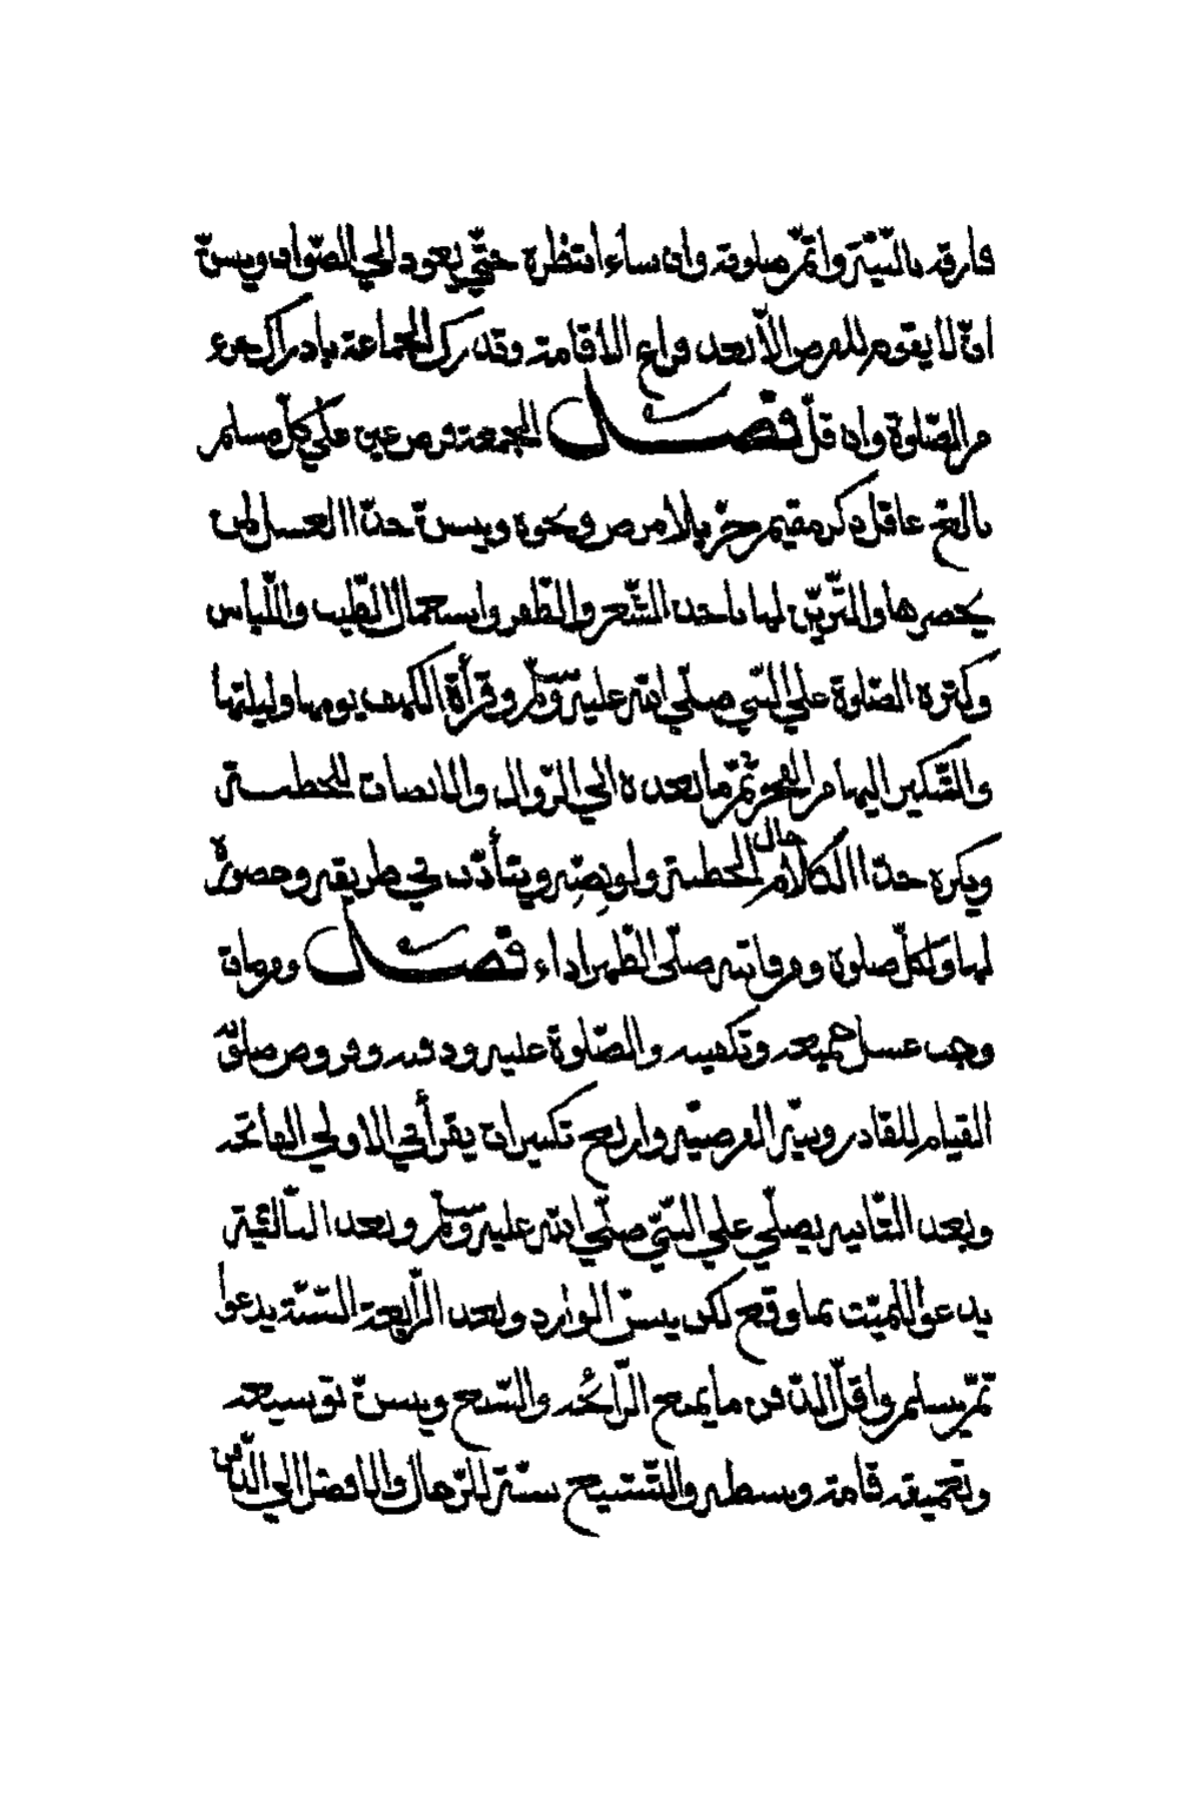 فارقه بالنيّة واتمّ صلوته وان شاء انتظره حتّي يعود الي الصّواب ويسنّ
انّ لا يقوم للفرض الاّ بعد فراغ الاقامة وتدرك الجماعة بادراك جزء
من الصّلوة وان قلّ فصل الجمعة فرض عين علي كلّ مسلم
بالغ عاقل ذكر مقيم حرّ بلا مرض ونحوه ويسنّ حدّا الغسل لمن
يحضرها والتّزيّن لها باخذ الشّعر والظّفر واستعمال الطّيب واللّباس
وكثرة الصّلوة علي النّبي صلّي الله عليه وسلّم وقرأة الكهف يومها وليلتها
والتّبكير اليها من الفجر ثمّ ما بعده الي الزّوال والانصات للخطبة
ويكره حدّا الكلام حال الخطبة ولو بصّه ويتأدّب في طريقه وحضوره
لها ولكلّ صلوة ومن فاتته صلّى الظّهر اداء فصل ومن مات
وجب غسل جميعه وتكفينه والصّلوة عليه ودفنه وفروض صلوته
القيام للقادر ونيّة الفرضيّة واربع تكبيرات يقرأ في الاولي الفاتحة
وبعد الثّانية يصلّي علي النّبيّ صلّي الله عليه وسلّم وبعد الثّالثة
يدعوا للميّت بما وقع لكن يسنّ الوارد وبعد الرّابعة السّنّة يدعوا
ثمّ يسلّم واقلّ الدّفن ما يمنع الرّائحة والسّبع ويسنّ توسيعه
وتعميقه قامة وبسطة والتّشييع سنّة للرّجال والافضل الي النّاس